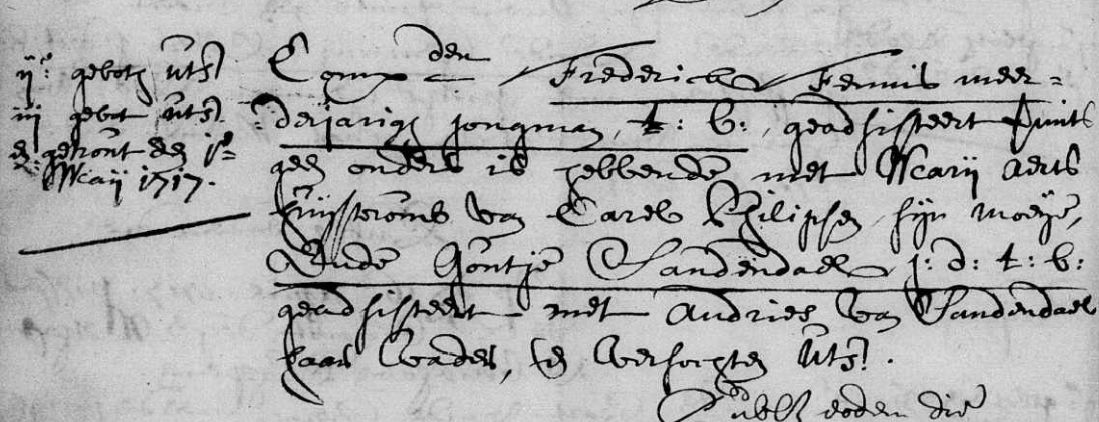 ij:e geboth uts.
iij gebot uts.
en getrout den 1e
Maij 1717.
Comp. den Frederick Fennis meer=
derjarige jongman, t: b:, geadsisteert mits
geen ouders is hebbende met Marij Aerts
huijsvrouw van Carel Philipsen sijn moeije,
Ende Gontje Sandendael j: d: t: b:
geadsisteert met Andries van Sandendael
haar vader, en versochten uts.
eodem die